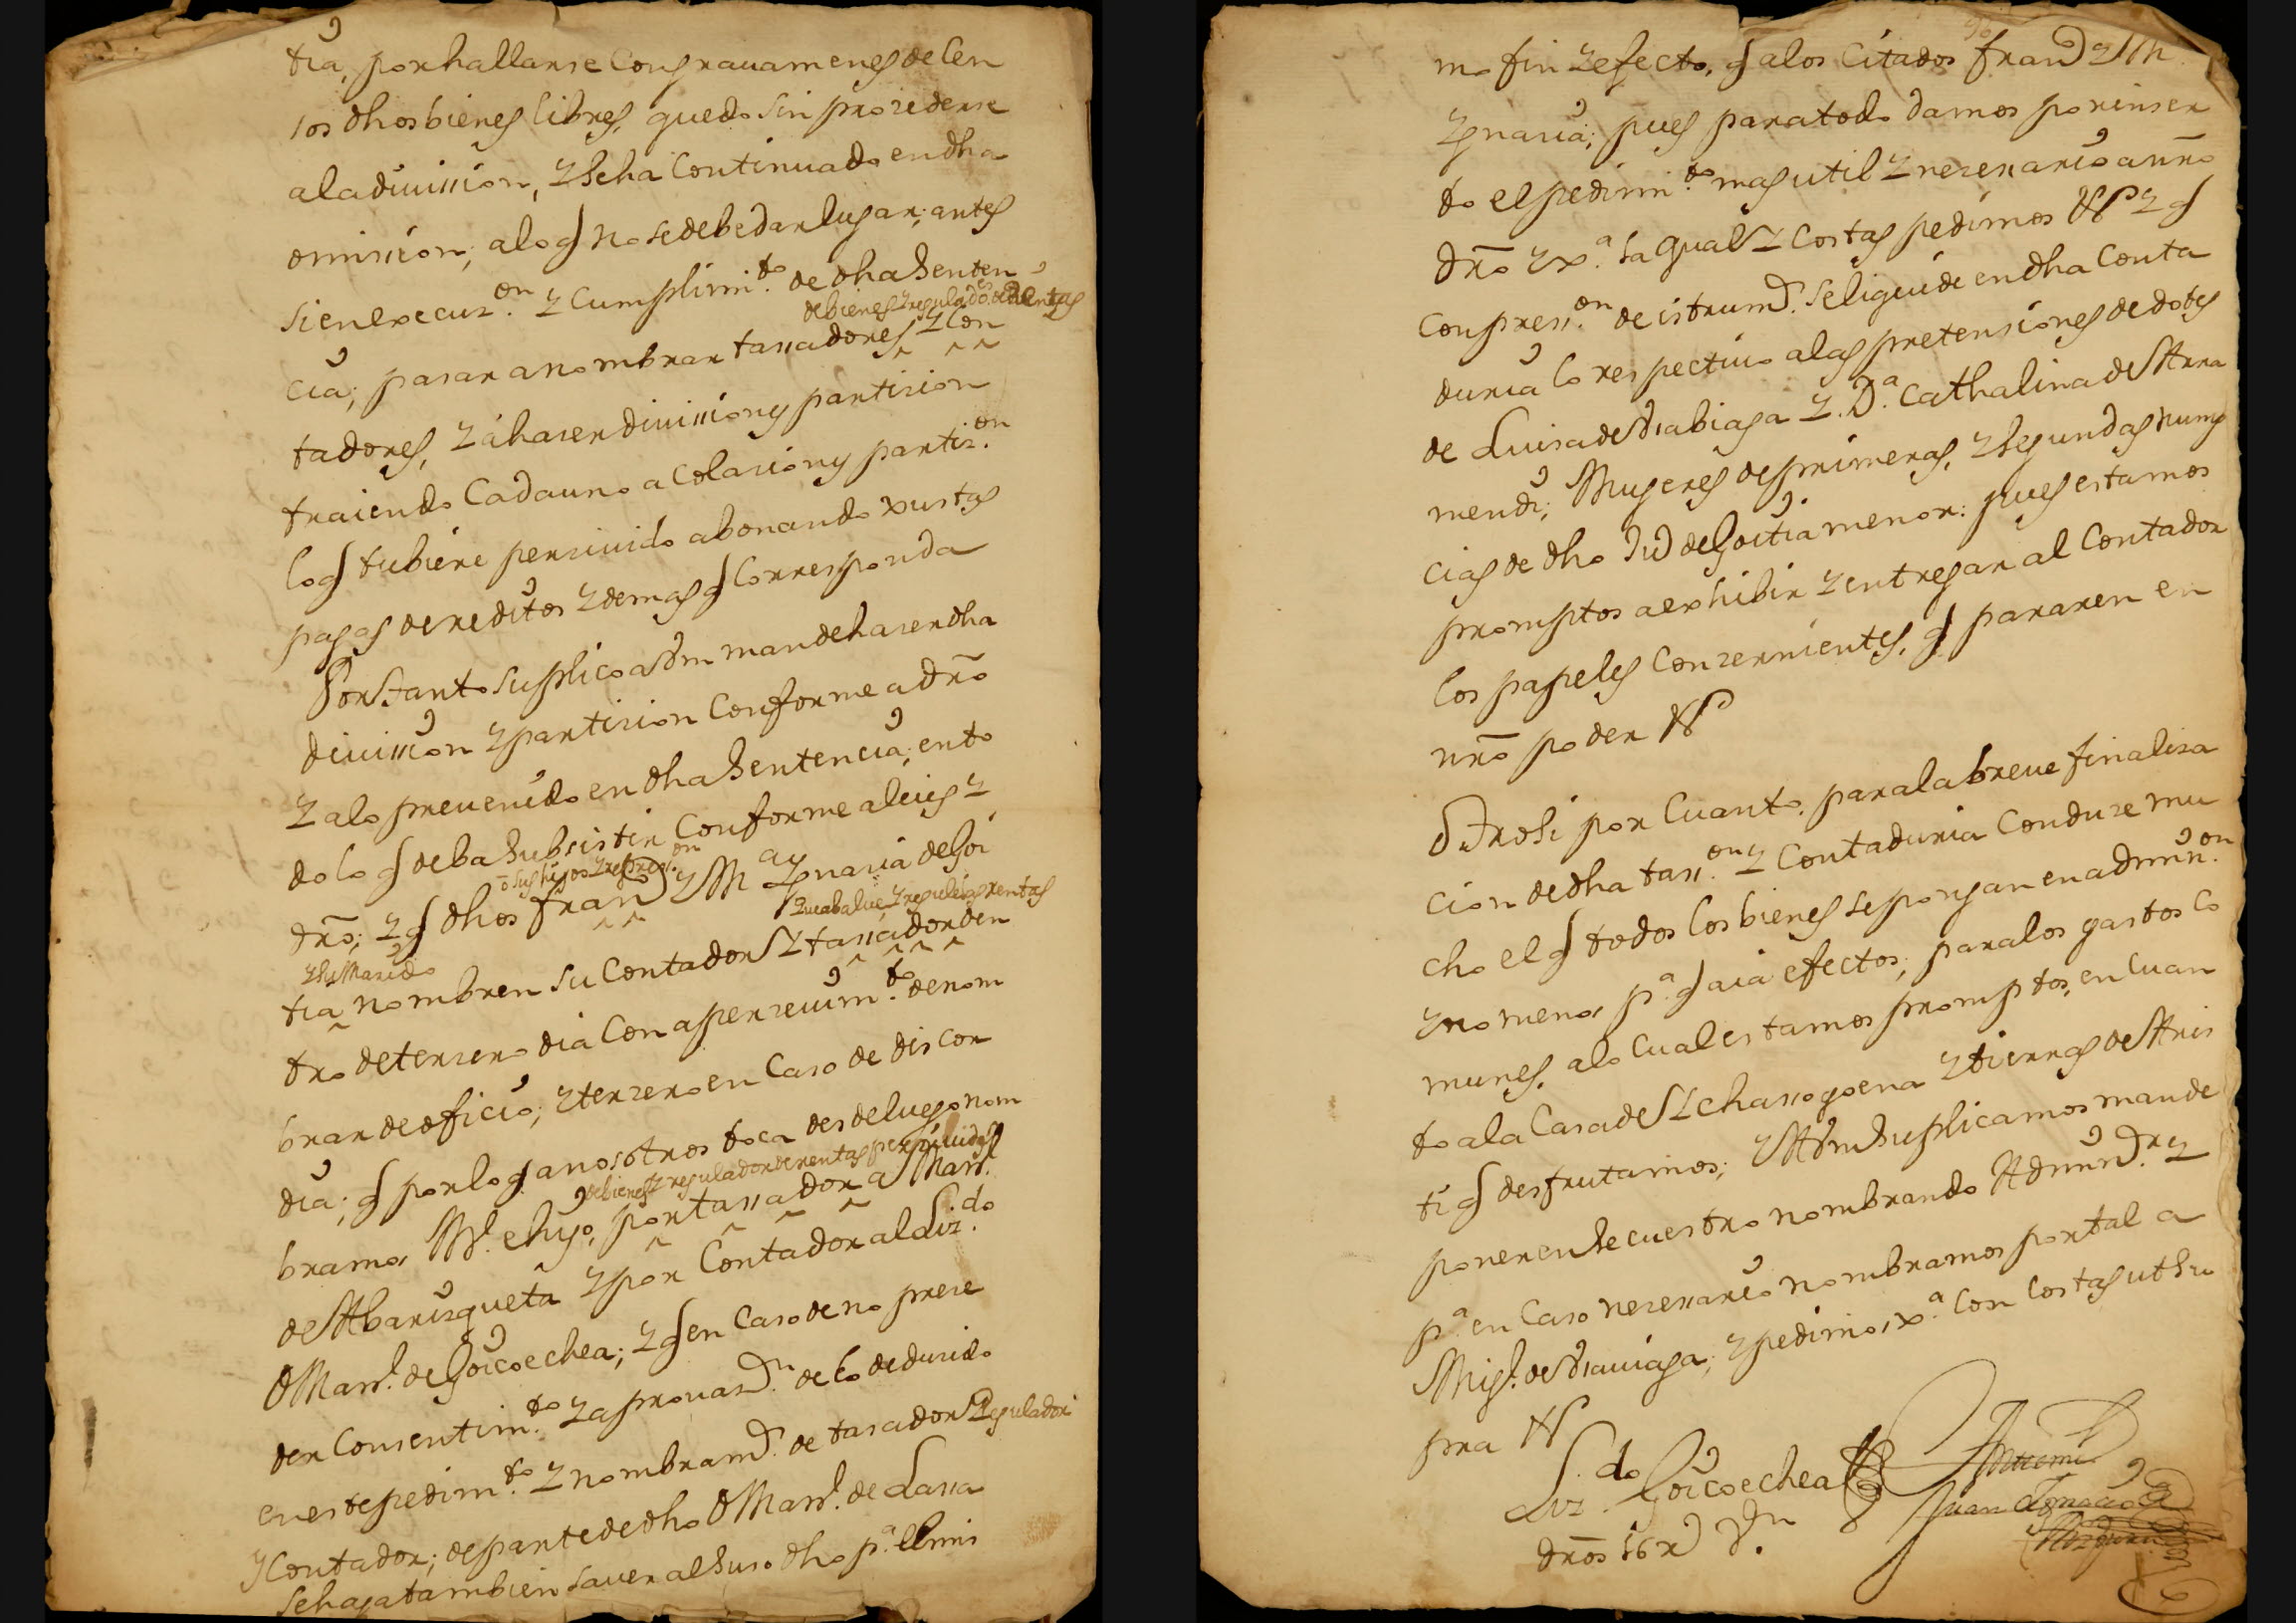 tia, por hallarse Con gravamenes de Cen
sos dhos bienes libres, quedo sin prozederse
ala diuission, y se ha Continuado en dha
omission; alo q no se debe dar lugar; antes
si en execuz.on y Cumplimi.to de dha Senten
de bienes y reguladores de Rentas
cia; pasar a nombrar tassadores y Con
tadores, y á haser diuission y partision
traiendo Cada uno a Colasion y partiz.on
lo q tubiere perziuido abonando xustas
pagas de reditos y demas q Corresponda
Por tanto suplico a Vm mande haser dha
diuission y partision Conforme a dr̃o
y alo preuenido en dha Sentencia; en to
do lo q deba Subsistir Conforme a leies y
ō sus hijos y repres.on
dr̃o; y q dhos fran.co y M.a Ygnaria de Goi
y su Marido
que abalue y regule las rentas
tia nombren su Contador y tassador den
tro de terzero dia Con aperzeuim.to de nom
brar de oficio; y terzero en Caso de discor
dia; q por lo q a nosotros toca desde luego nom
de bienes y regulador de rentas perziuidas
bramos M.l ehijo, por tassador a Mart.
de Abarizqueta y por Contador al Liz.do
D Mart. de Goicoechea; y q en Caso de no prese
der Consentim.to y aprouaz.n de lo dedusido
en este pedim.to y nombram.to de tasador Regulador
y Contador; de parte de dho D Mart. de Lassa
se haga tambien sauer al Suso dho p.a el mis
mo fin y efecto, q alos Citados fran.co y M
Ygnaria; pues para todo damos por inser
to el pedimi.to mas util y nezessario a nr̃o
dr̃o y x.a la qual y Costas pedimos &.a y q
Con press.on de istrum.tos se liquide en dha Conta
duria lo respectiuo alas pretensiones de dotes
de Luisa de Vsabiaga y D.a Cathalina de Arra
mendi; Mugeres de primeras, y segundas nup
cias de dho Ju.o de Goitia menor: pues estamos
promptos a exhibir y entregar al Contador
los papeles Conzernientes, q pararen en
nr̃o poder &.a
Otrosi por Cuanto, para la breue finalisa
cion de dha tass.on y Contaduria Conduze mu
cho el q todos los bienes se pongan en admin.on
y no menos p.a q aia efectos, para los gastos Co
munes, alo Cual estamos promptos, en Cuan
to ala Casa de Echassogoena y tierras de Aris
ti q desfrutamos; y A Vm Suplicamos mande
poner en Secuestro nombrando Admin.or y
p.a en Caso nezessario nombramos por tal a
Mig.l de Vsauiaga; y pedimos x.a Con Costas ut Su
pra &.a
Liz.do Goicoechea
Antemi
Juan Ignacio
dr̃os 16 r.s Vn